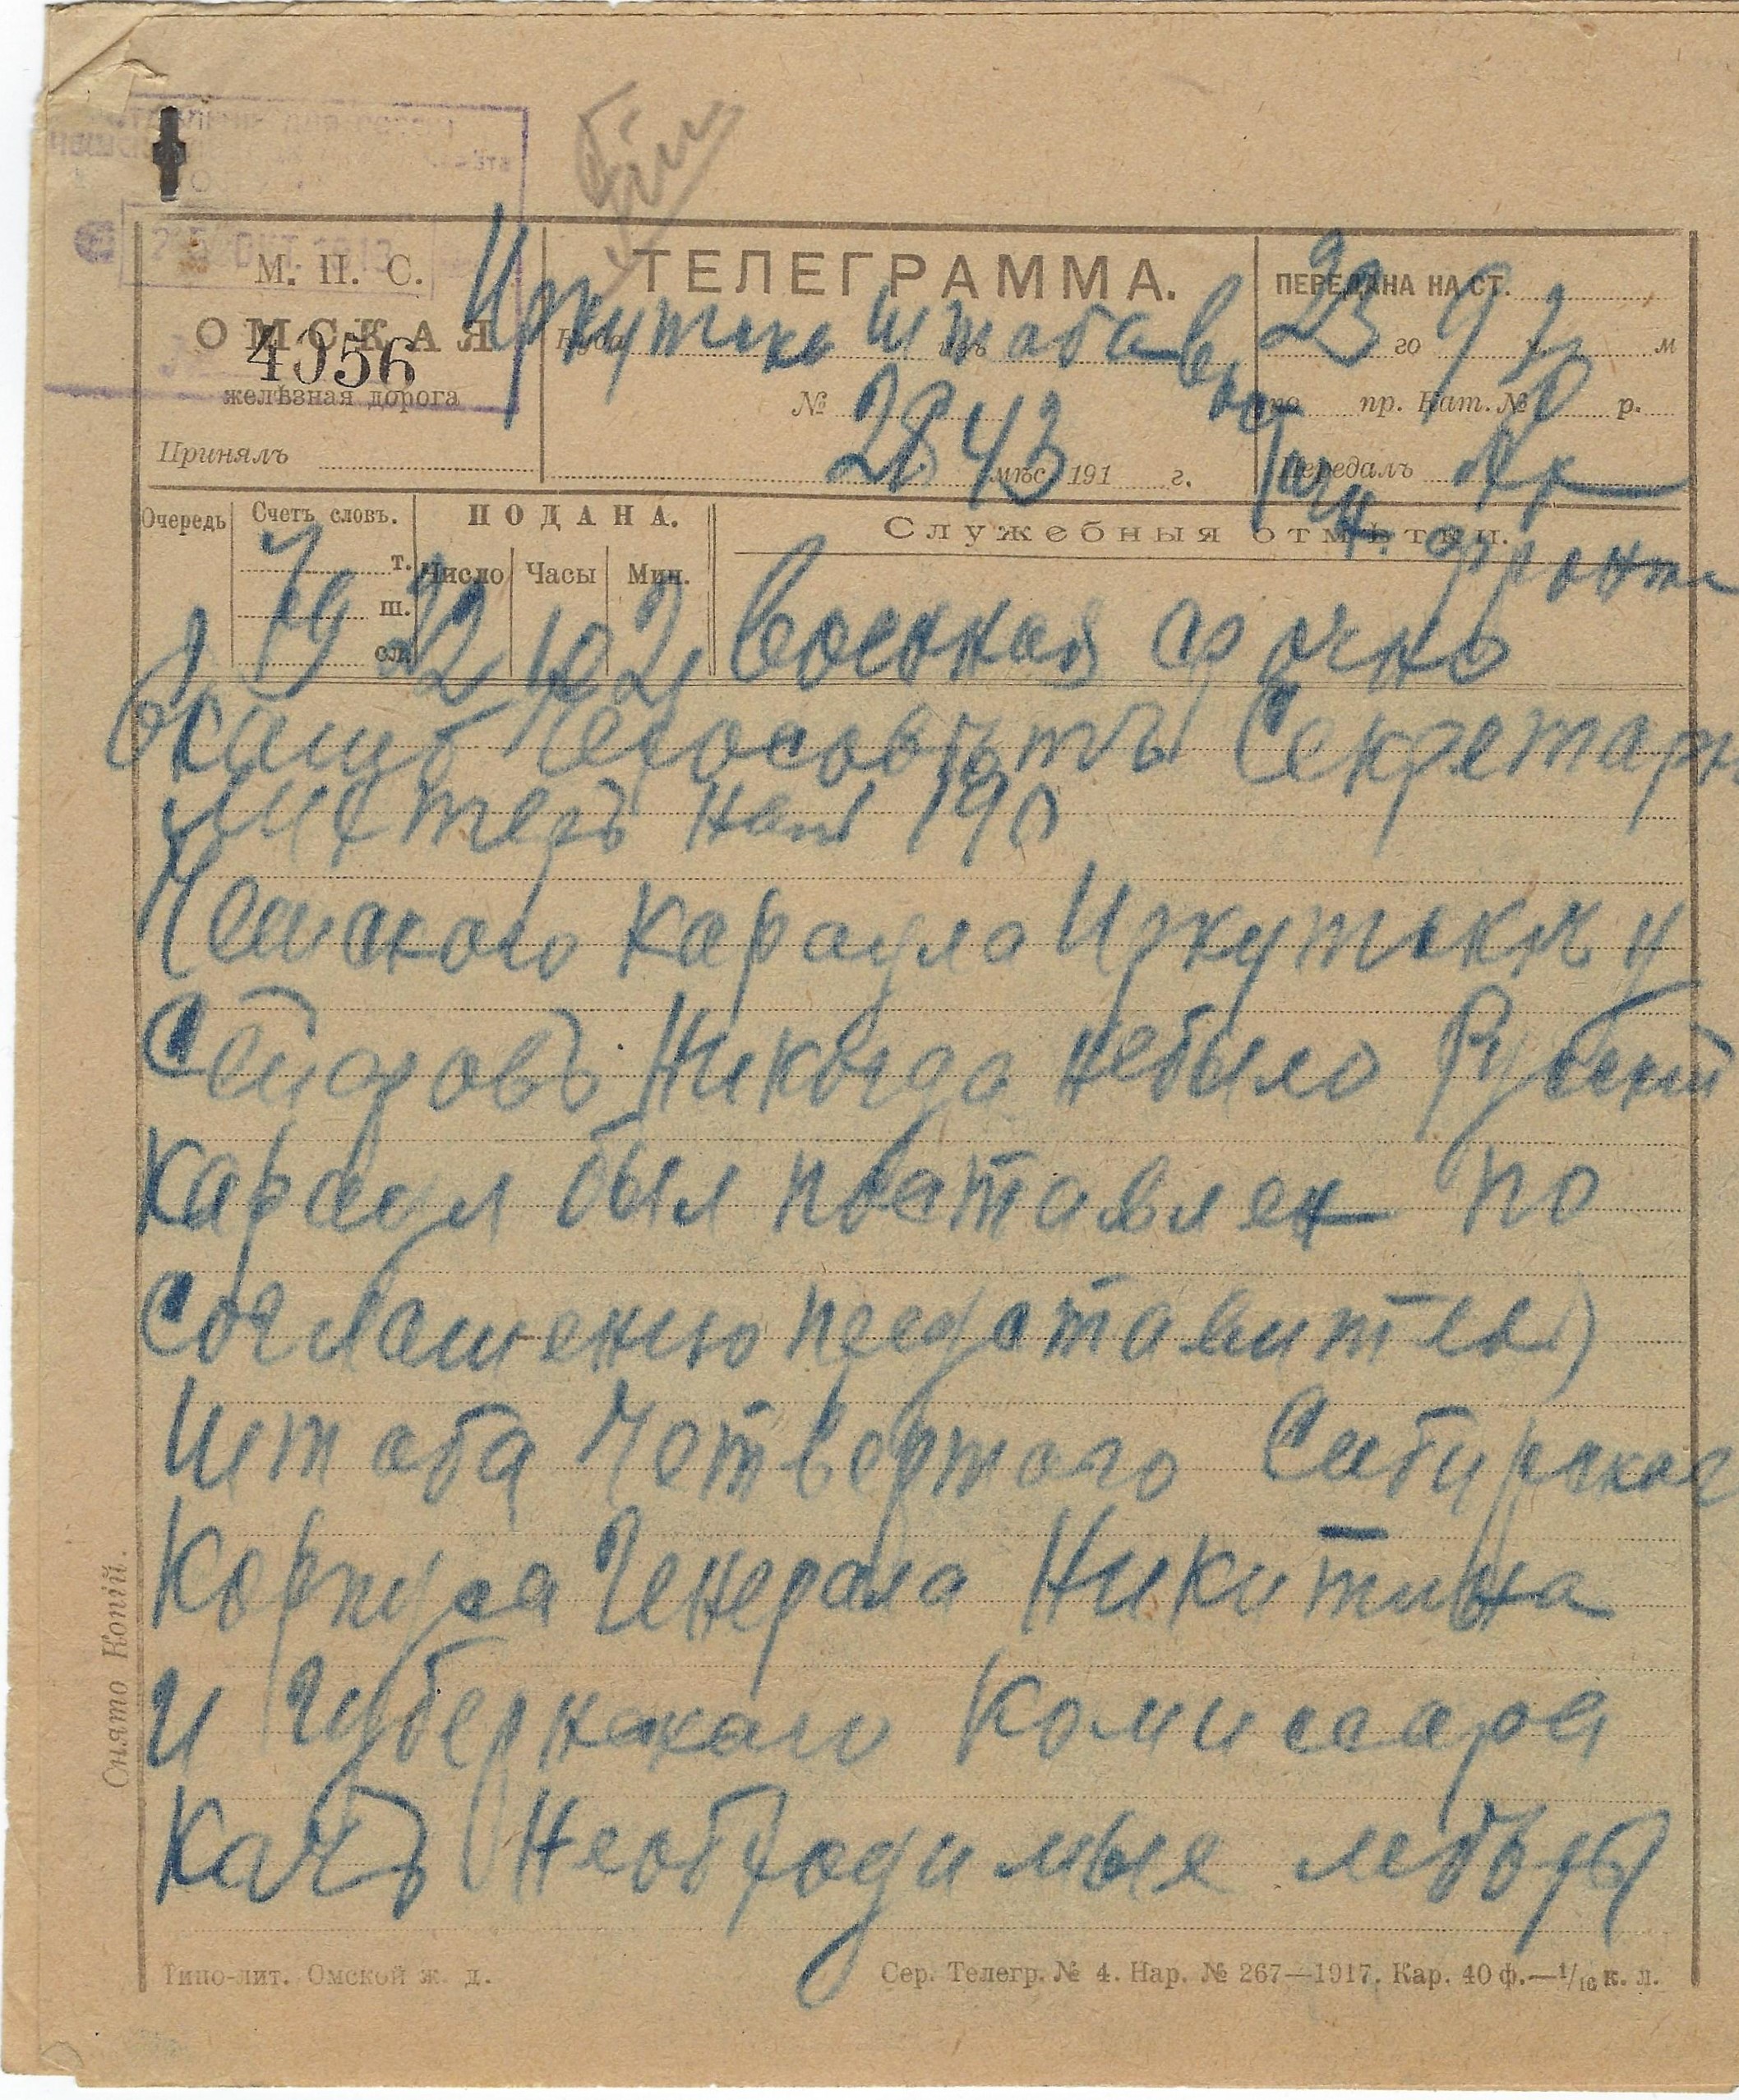 25 ОКТ 191
М. П. С.
ОМСКАЯ
4056
желѣзная дорога
Принялъ
ТЕЛЕГРАММА.
Иркутска штаба
№ 2843
мѣс. 191 г.
ПЕРЕДАНА НА СТ.
23 го 9 ч м
по пр. Кат. № р.
передалъ
фронта
Очередь
Счетъ словъ.
т.
ш.
сл.
ПОДАНА.
Число Часы Мин.
Служебныя отмѣтки.
79 22 10 2 Военная срочно
Секретарь
на 190
Чешского караула Иркутскѣ у
Сейфовъ Никогда небыло Руский
караул был поставлен по
соглашению представителя
Штаба Четвертого Сибирског
Корпуса Генерала Никитина
и Губернскаго Комиссара
Качъ Необходимые
Снято Копій.
Типо-лит. Омской ж. д.
Сер. Телегр. № 4. Нар. № 267—1917. Кар. 40 ф.—1/16 к. л.